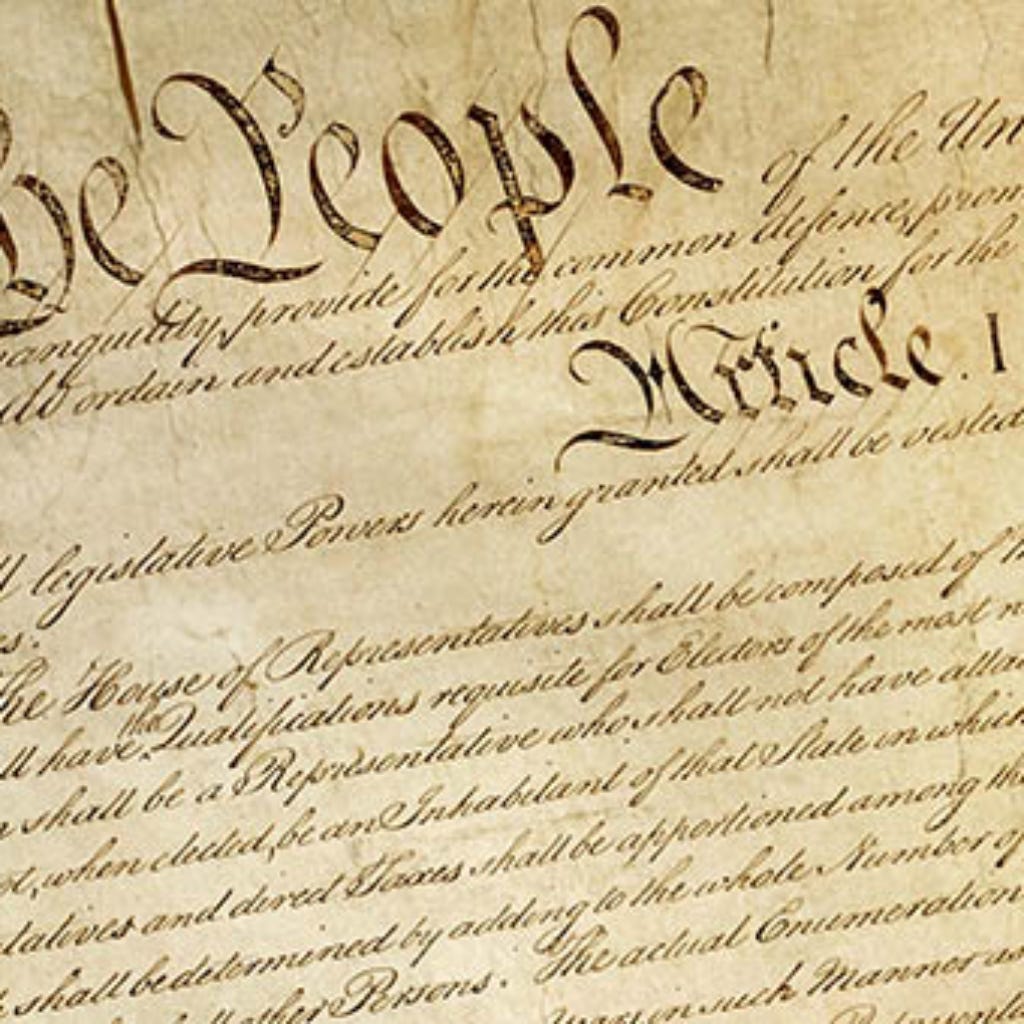 he People of the Un
anquility, provide for the common defence, prom
do ordain and establish this Constitution for the
Article. I
ll legislative Powers herein granted shall be vested
es.
he House of Representatives shall be composed of
ll have the Qualifications requisite for Electors of the most n
shall be a Representative who shall not have attai
d, when elected, be an Inhabitant of that State in which
tatives and direct Taxes shall be apportioned among the
shall be determined by adding to the whole Number of
other Persons. The actual Enumeration
in such Manner as